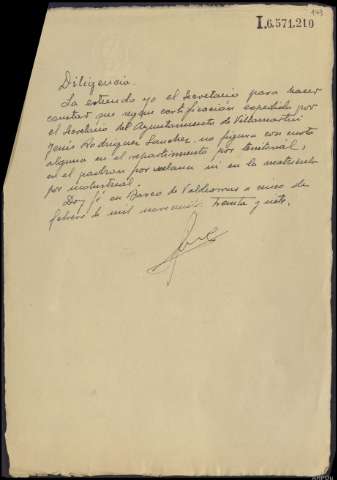 143
I.6.571.210
Diligencia.
La extiendo yo el Secretario para hacer
constar que según certificación expedida por
el Secretario del Ayuntamiento de Villamartín
Jesús Rodríguez Sánchez, no figura con cuota
alguna en el repartimiento por territorial,
en el padrón por urbana ni en la matrícula
por industrial.
Doy fé en Barco de Valdeorras a cinco de
febrero de mil novecientos treinta y siete.